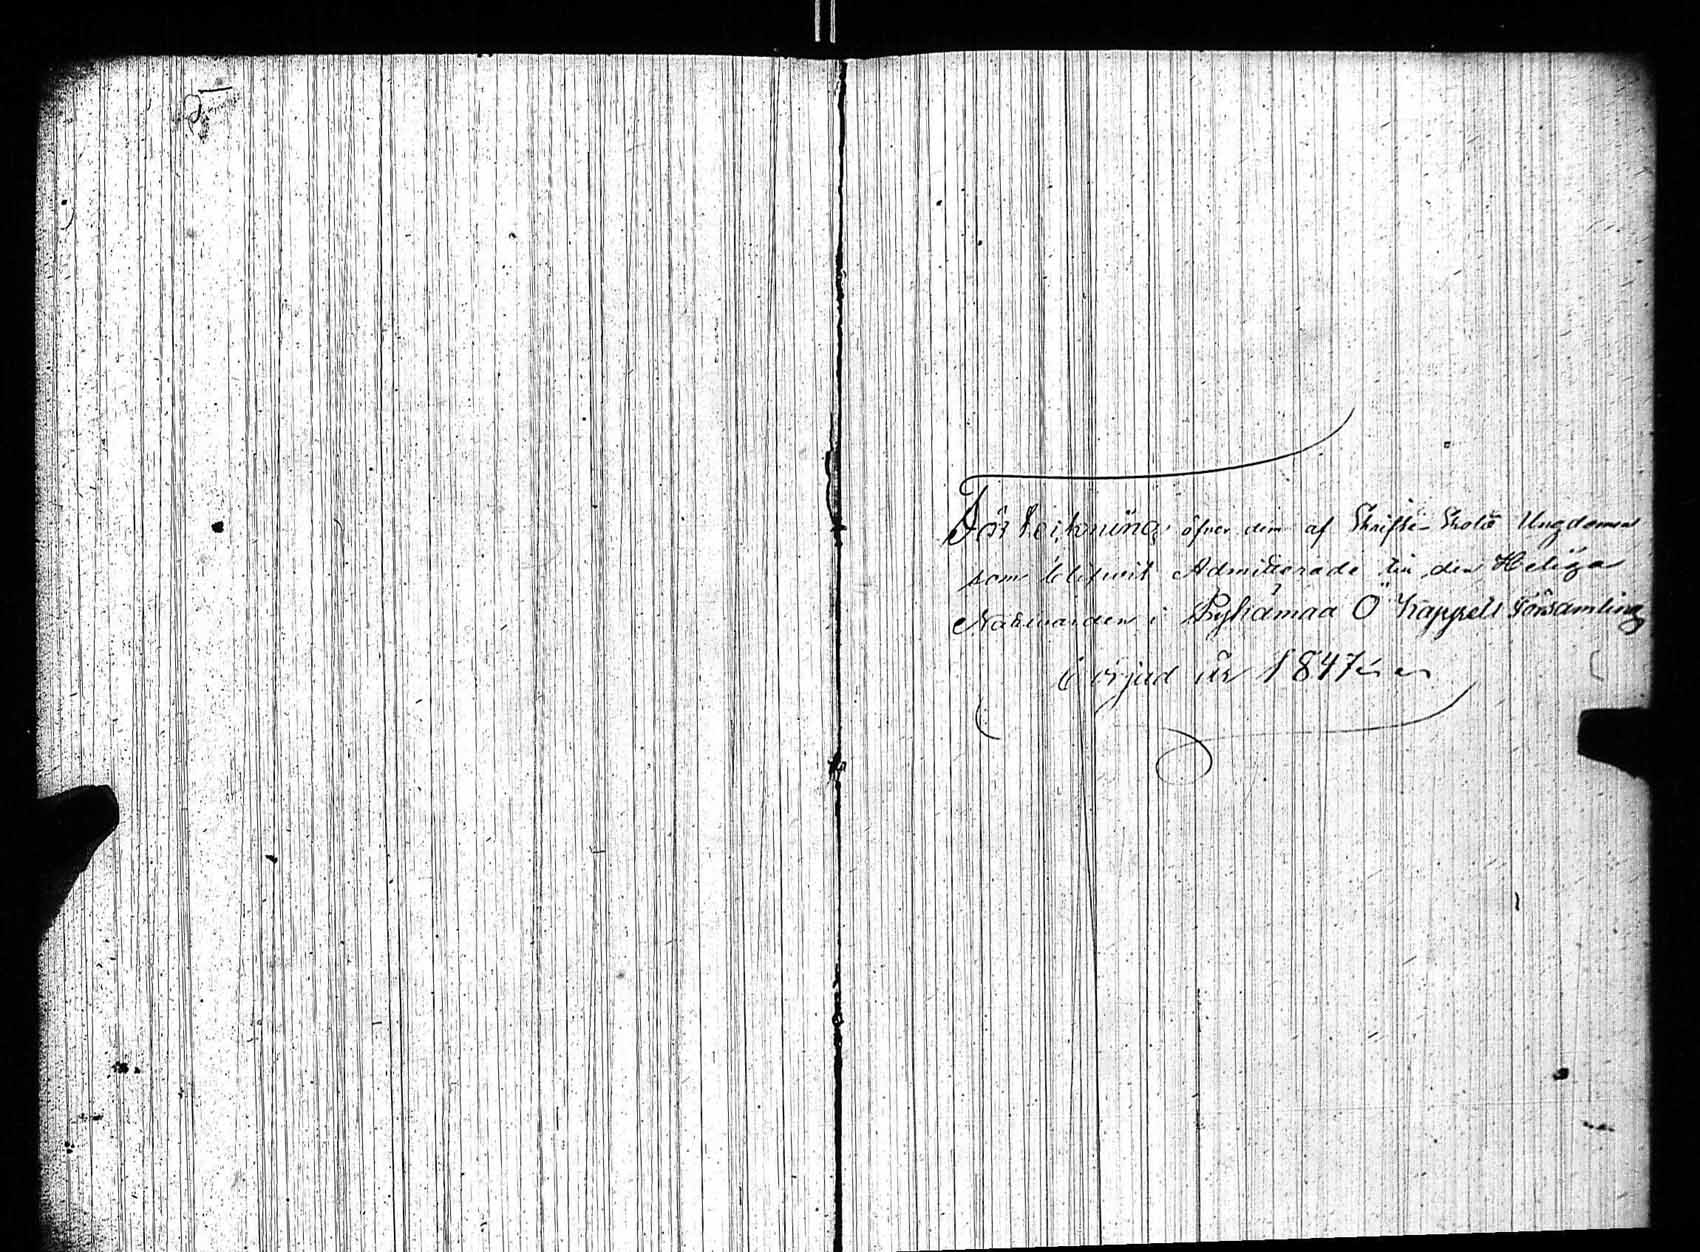 Förteikning öfver dem af Skrift-Skole Ungdomen
som blifvit Admitterade till den Heliga
Nattvarden i Pyhämaa Ö Kappells Församling
börjad år 1847